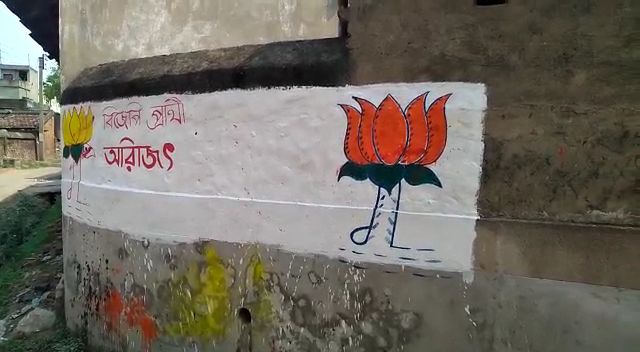 বিজেপি প্রার্থী
অরিজিৎ